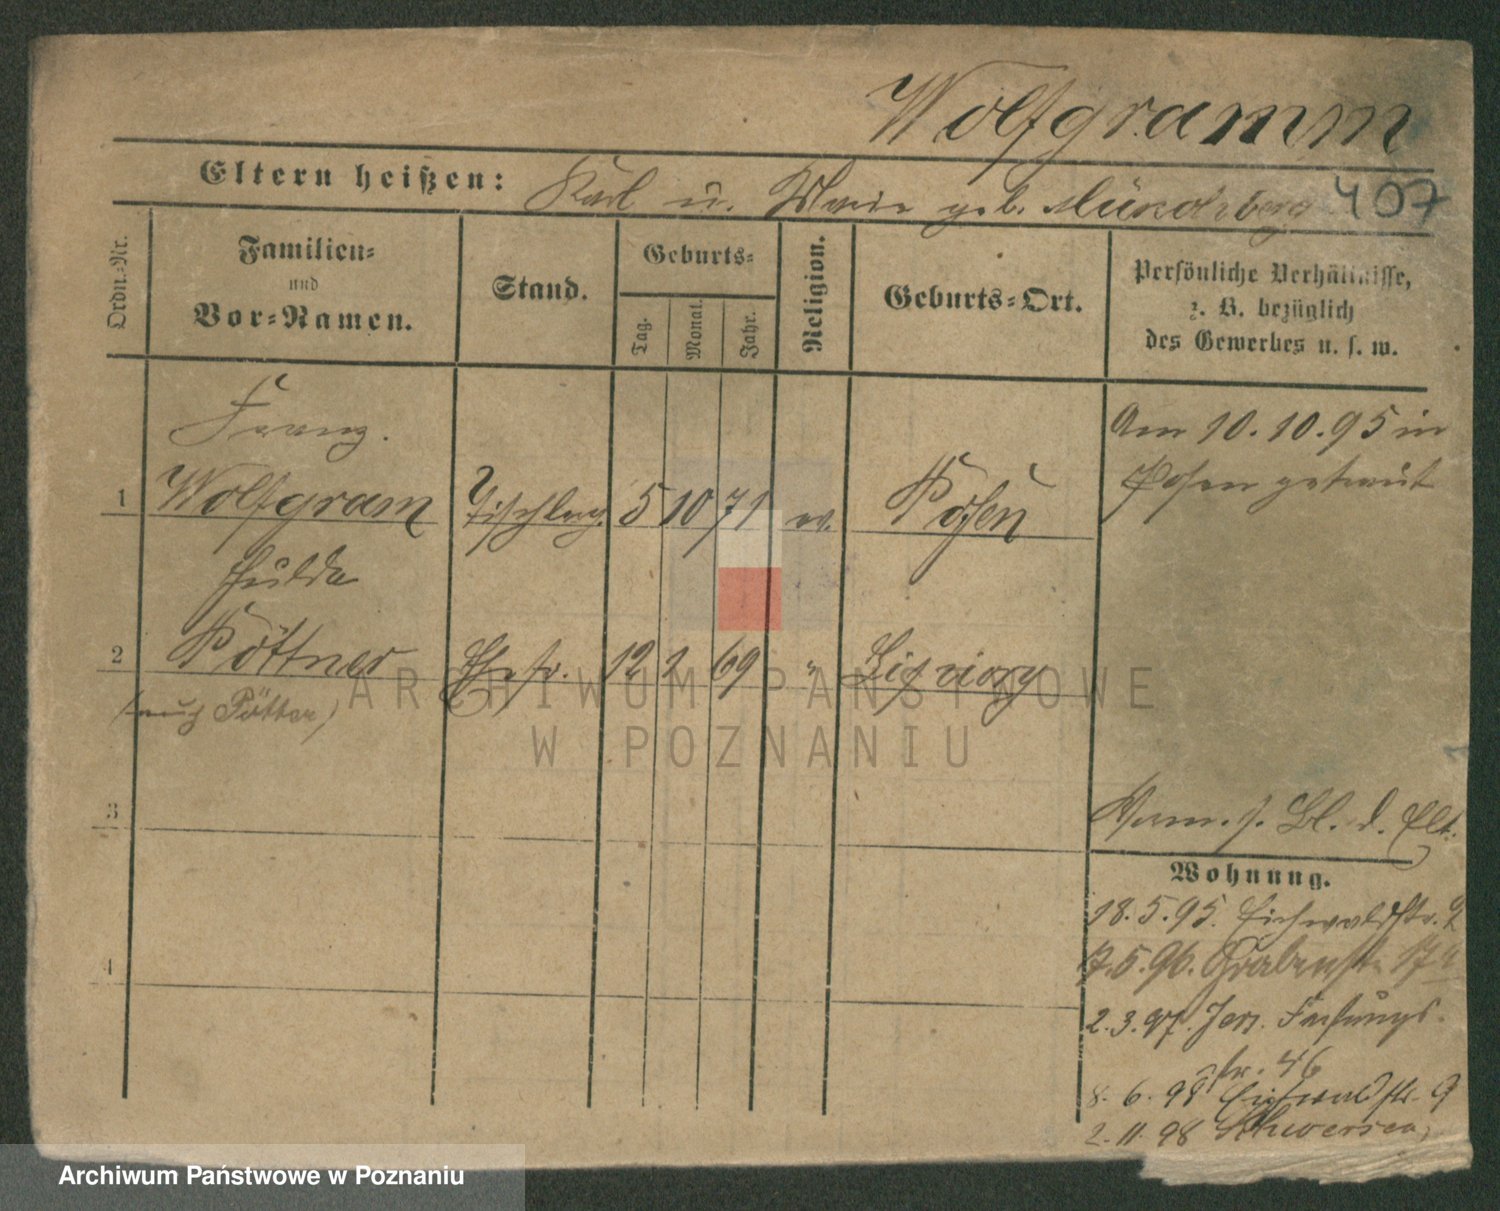 Wolfgramm
Eltern heißen: Karl u. Marie geb. Münchberg
407
Ordn.-Nr.
Familien-
und
Vor-Namen.
Stand.
Geburts-
Tag.
Monat.
Jahr.
Religion.
Geburts-Ort.
Persönliche Verhältnisse,
z. B. bezüglich
des Gewerbes u. s. w.
Franz.
1 Wolfgram Tischlerg. 5 10 71 ev. Posen
Am 10.10.95 in
Posen getraut
Hulda
2 Pöttner Ehefr. 12 2 69 "
(auch Pötter)
3
4
Verm. s. Bl. d. Elt.
Wohnung.
18.5.95. Eichwaldstr. 9
17.5.96. Grabenstr. 17
2.3.97. Jers.
str. 46
8.6.98 Eichwaldstr. 9
2.11.98 Schwersenz
ARCHIWUM PAŃSTWOWE
W POZNANIU
Archiwum Państwowe w Poznaniu